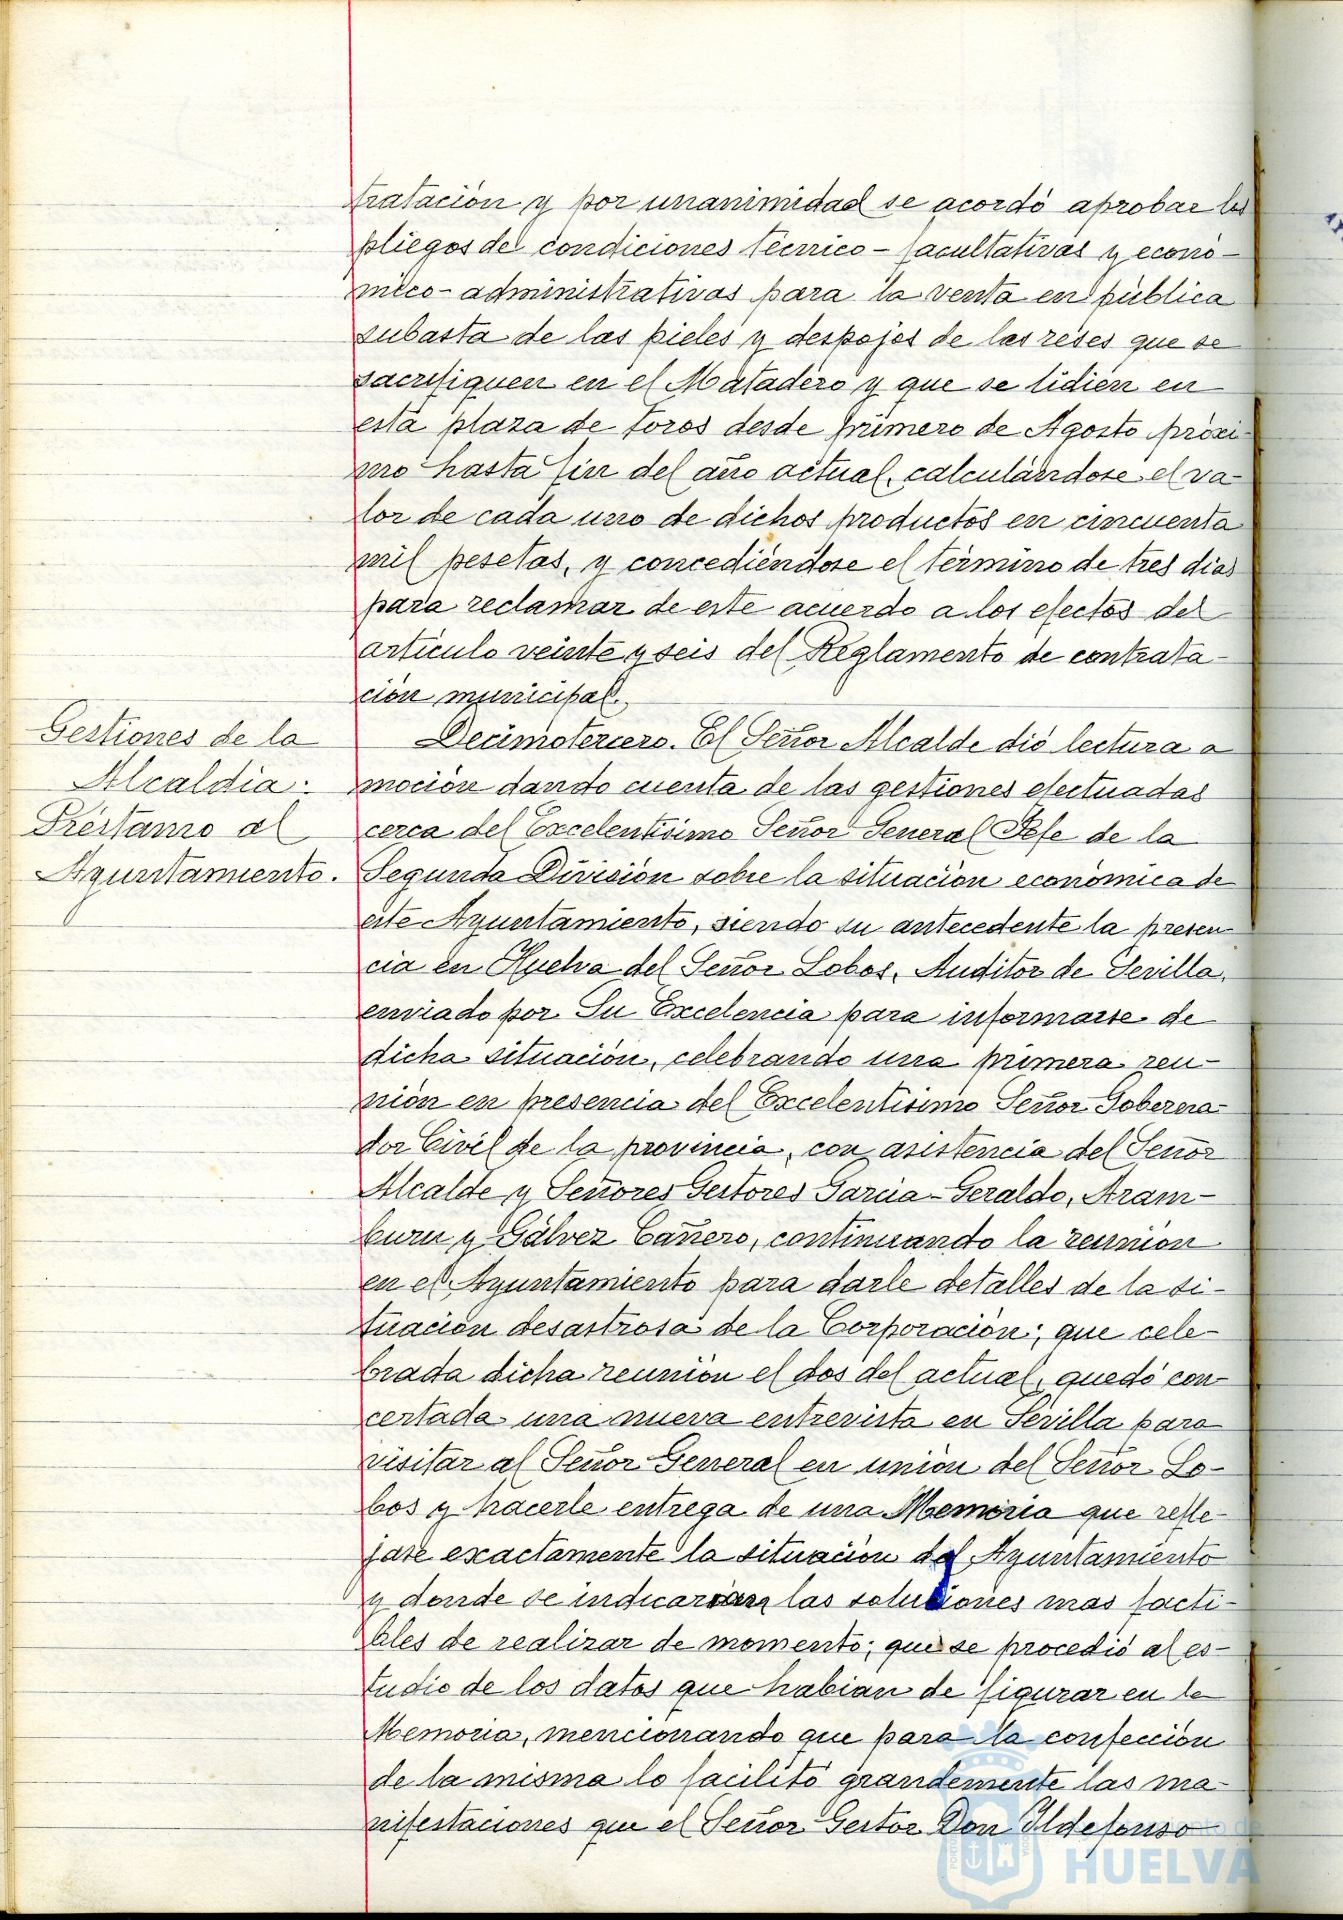 tratación y por unanimidad se acordó aprobar los
pliegos de condiciones técnico-facultativas y econó-
mico-administrativas para la venta en pública
subasta de las pieles y despojos de las reses que se
sacrifiquen en el Matadero y que se lidien en
esta plaza de toros desde primero de Agosto próxi-
mo hasta fin del año actual, calculándose el va-
lor de cada uno de dichos productos en cincuenta
mil pesetas, y concediéndose el término de tres dias
para reclamar de este acuerdo a los efectos del
artículo veinte y seis del Reglamento de contrata-
ción municipal.
Gestiones de la
Alcaldia:
Préstamo al
Ayuntamiento.
Decimotercero. El Señor Alcalde dió lectura a
moción dando cuenta de las gestiones efectuadas
cerca del Excelentísimo Señor General Jefe de la
Segunda División sobre la situación económica de
este Ayuntamiento, siendo su antecedente la presen-
cia en Huelva del Señor Lobos, Auditor de Sevilla,
enviado por Su Excelencia para informarse de
dicha situación, celebrando una primera reu-
nión en presencia del Excelentísimo Señor Goberna-
dor Civil de la provincia, con asistencia del Señor
Alcalde y Señores Gestores Garcia-Geraldo, Aram-
buru y Gálvez Cañero, continuando la reunión
en el Ayuntamiento para darle detalles de la si-
tuación desastrosa de la Corporación; que cele-
brada dicha reunión el dos del actual, quedó con-
certada una nueva entrevista en Sevilla para
visitar al Señor General en unión del Señor Lo-
bos y hacerle entrega de una Memoria que refle-
jase exactamente la situación del Ayuntamiento
y donde se indicaran las soluciones mas facti-
bles de realizar de momento; que se procedió al es-
tudio de los datos que habian de figurar en la
Memoria, mencionando que para la confección
de la misma lo facilitó grandemente las ma-
nifestaciones que el Señor Gestor Don Ildefonso
HUELVA